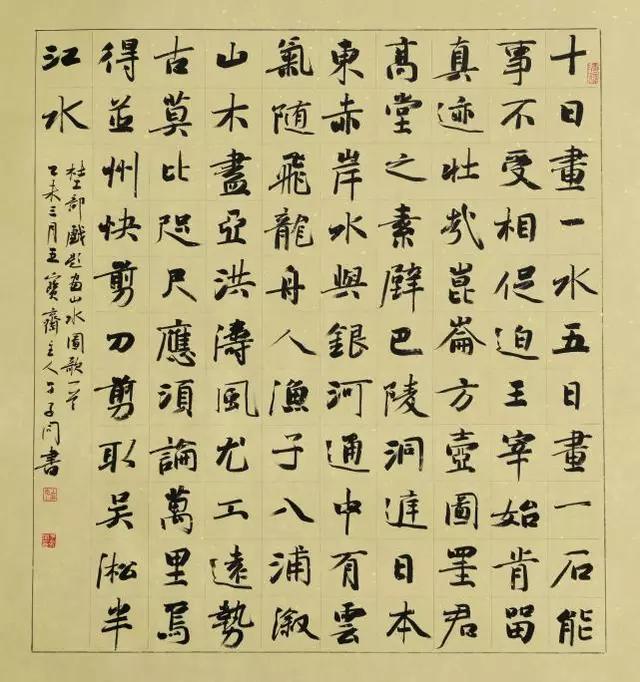 十日畫一水五日畫一石能
事不受相促迫王宰始肯留
真迹壯哉崑崙方壺圖墨君
高堂之素壁巴陵洞庭日本
東赤岸水與銀河通中有雲
氣随飛龍舟人漁子入浦溆
山木盡亞洪濤風尤工遠勢
古莫比咫尺應須論萬里焉
得並州快剪刀剪取吳淞半
江水
杜工部戲題畫山水圖歌一首
乙未三月五寶齋主人丁子門書